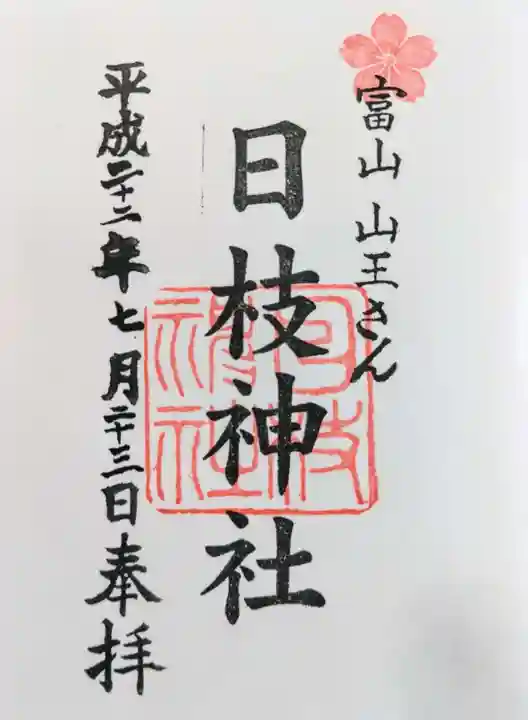 富山 山王さん
日枝神社
日枝神社
平成二十二年七月二十三日奉拝